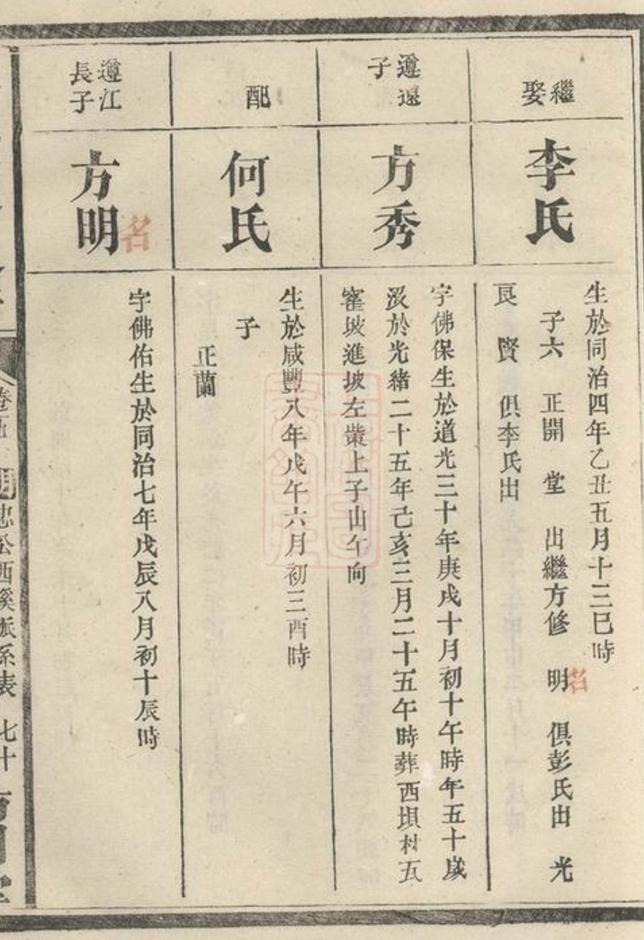 繼娶
李氏
生於同治四年乙丑五月十三巳時
子六 正開 堂 出繼方修 明 俱彭氏出 光
良 賢 俱李氏出
名
遵遠子
方秀
字佛保生於道光三十年庚戌十月初十午時年五十歲
沒於光緒二十五年己亥三月二十五午時葬西垻村瓦
窰坡進坡左業上子山午向
配
何氏
生於咸豐八年戊午六月初三酉時
子
正蘭
遵江長子
方明
名
字佛佑生於同治七年戊辰八月初十辰時
卷五
忠公西溪派系表 七十